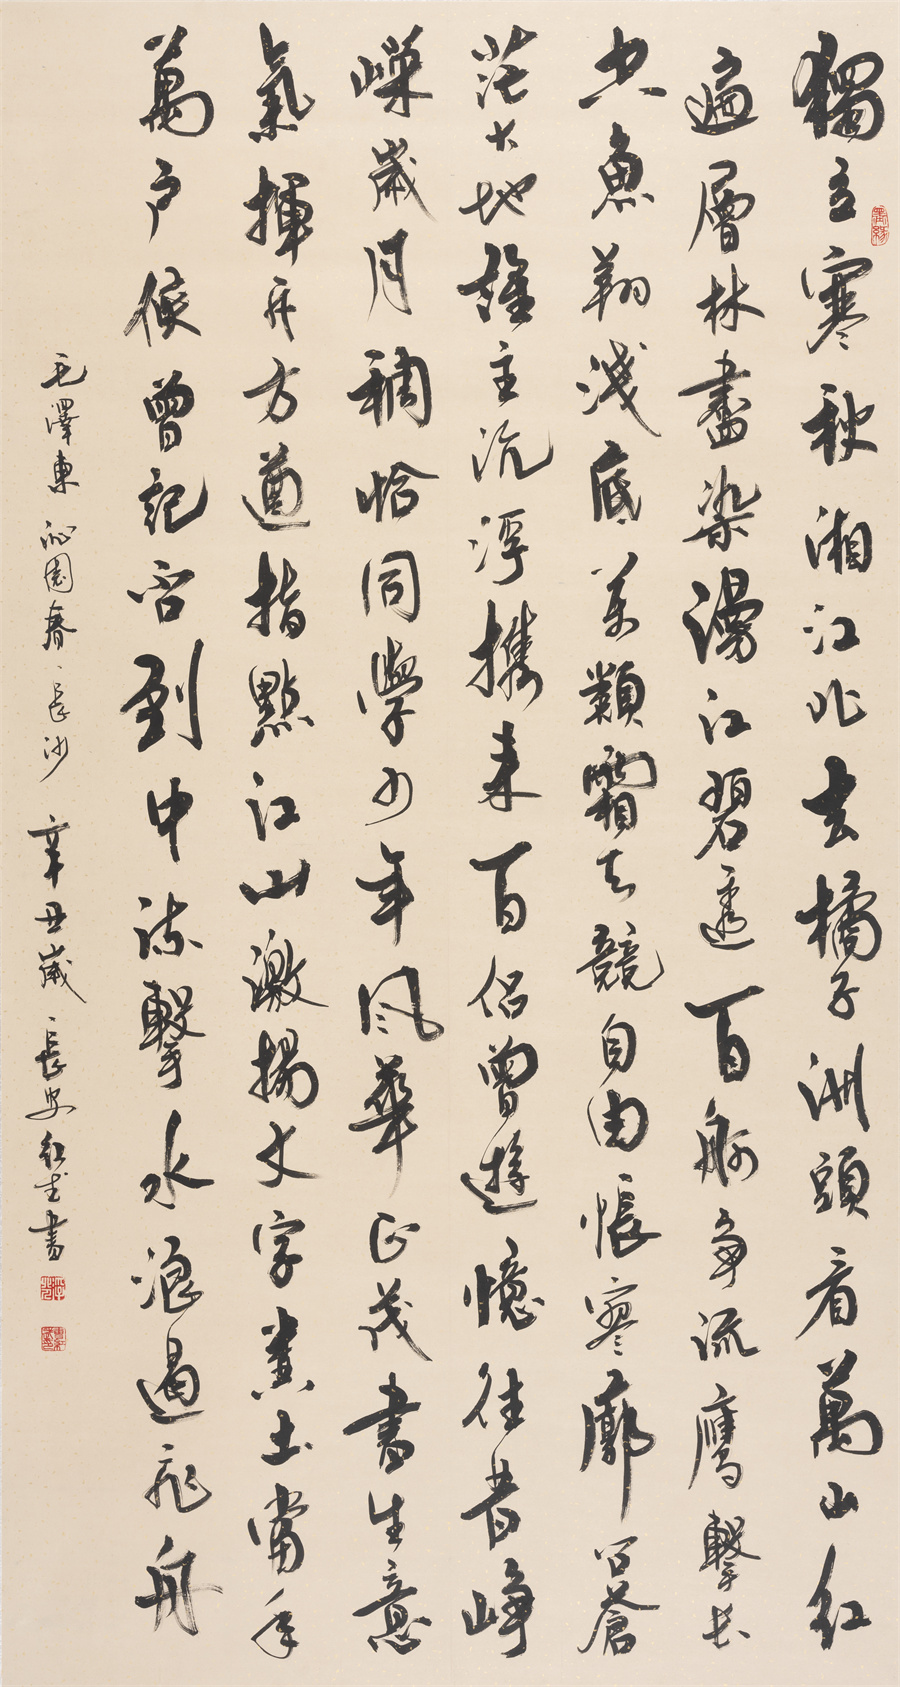 獨立寒秋湘江北去橘子洲頭看萬山紅
遍層林盡染漫江碧透百舸爭流鷹擊長
空魚翔淺底萬類霜天競自由悵寥廓問蒼
茫大地誰主沉浮攜來百侶曾遊憶往昔崢
嶸歲月稠恰同學少年風華正茂書生意
氣揮斥方遒指點江山激揚文字糞土當年
萬户侯曾記否到中流擊水浪遏飛舟
毛澤東沁園春、長沙 辛丑歲長安紅書